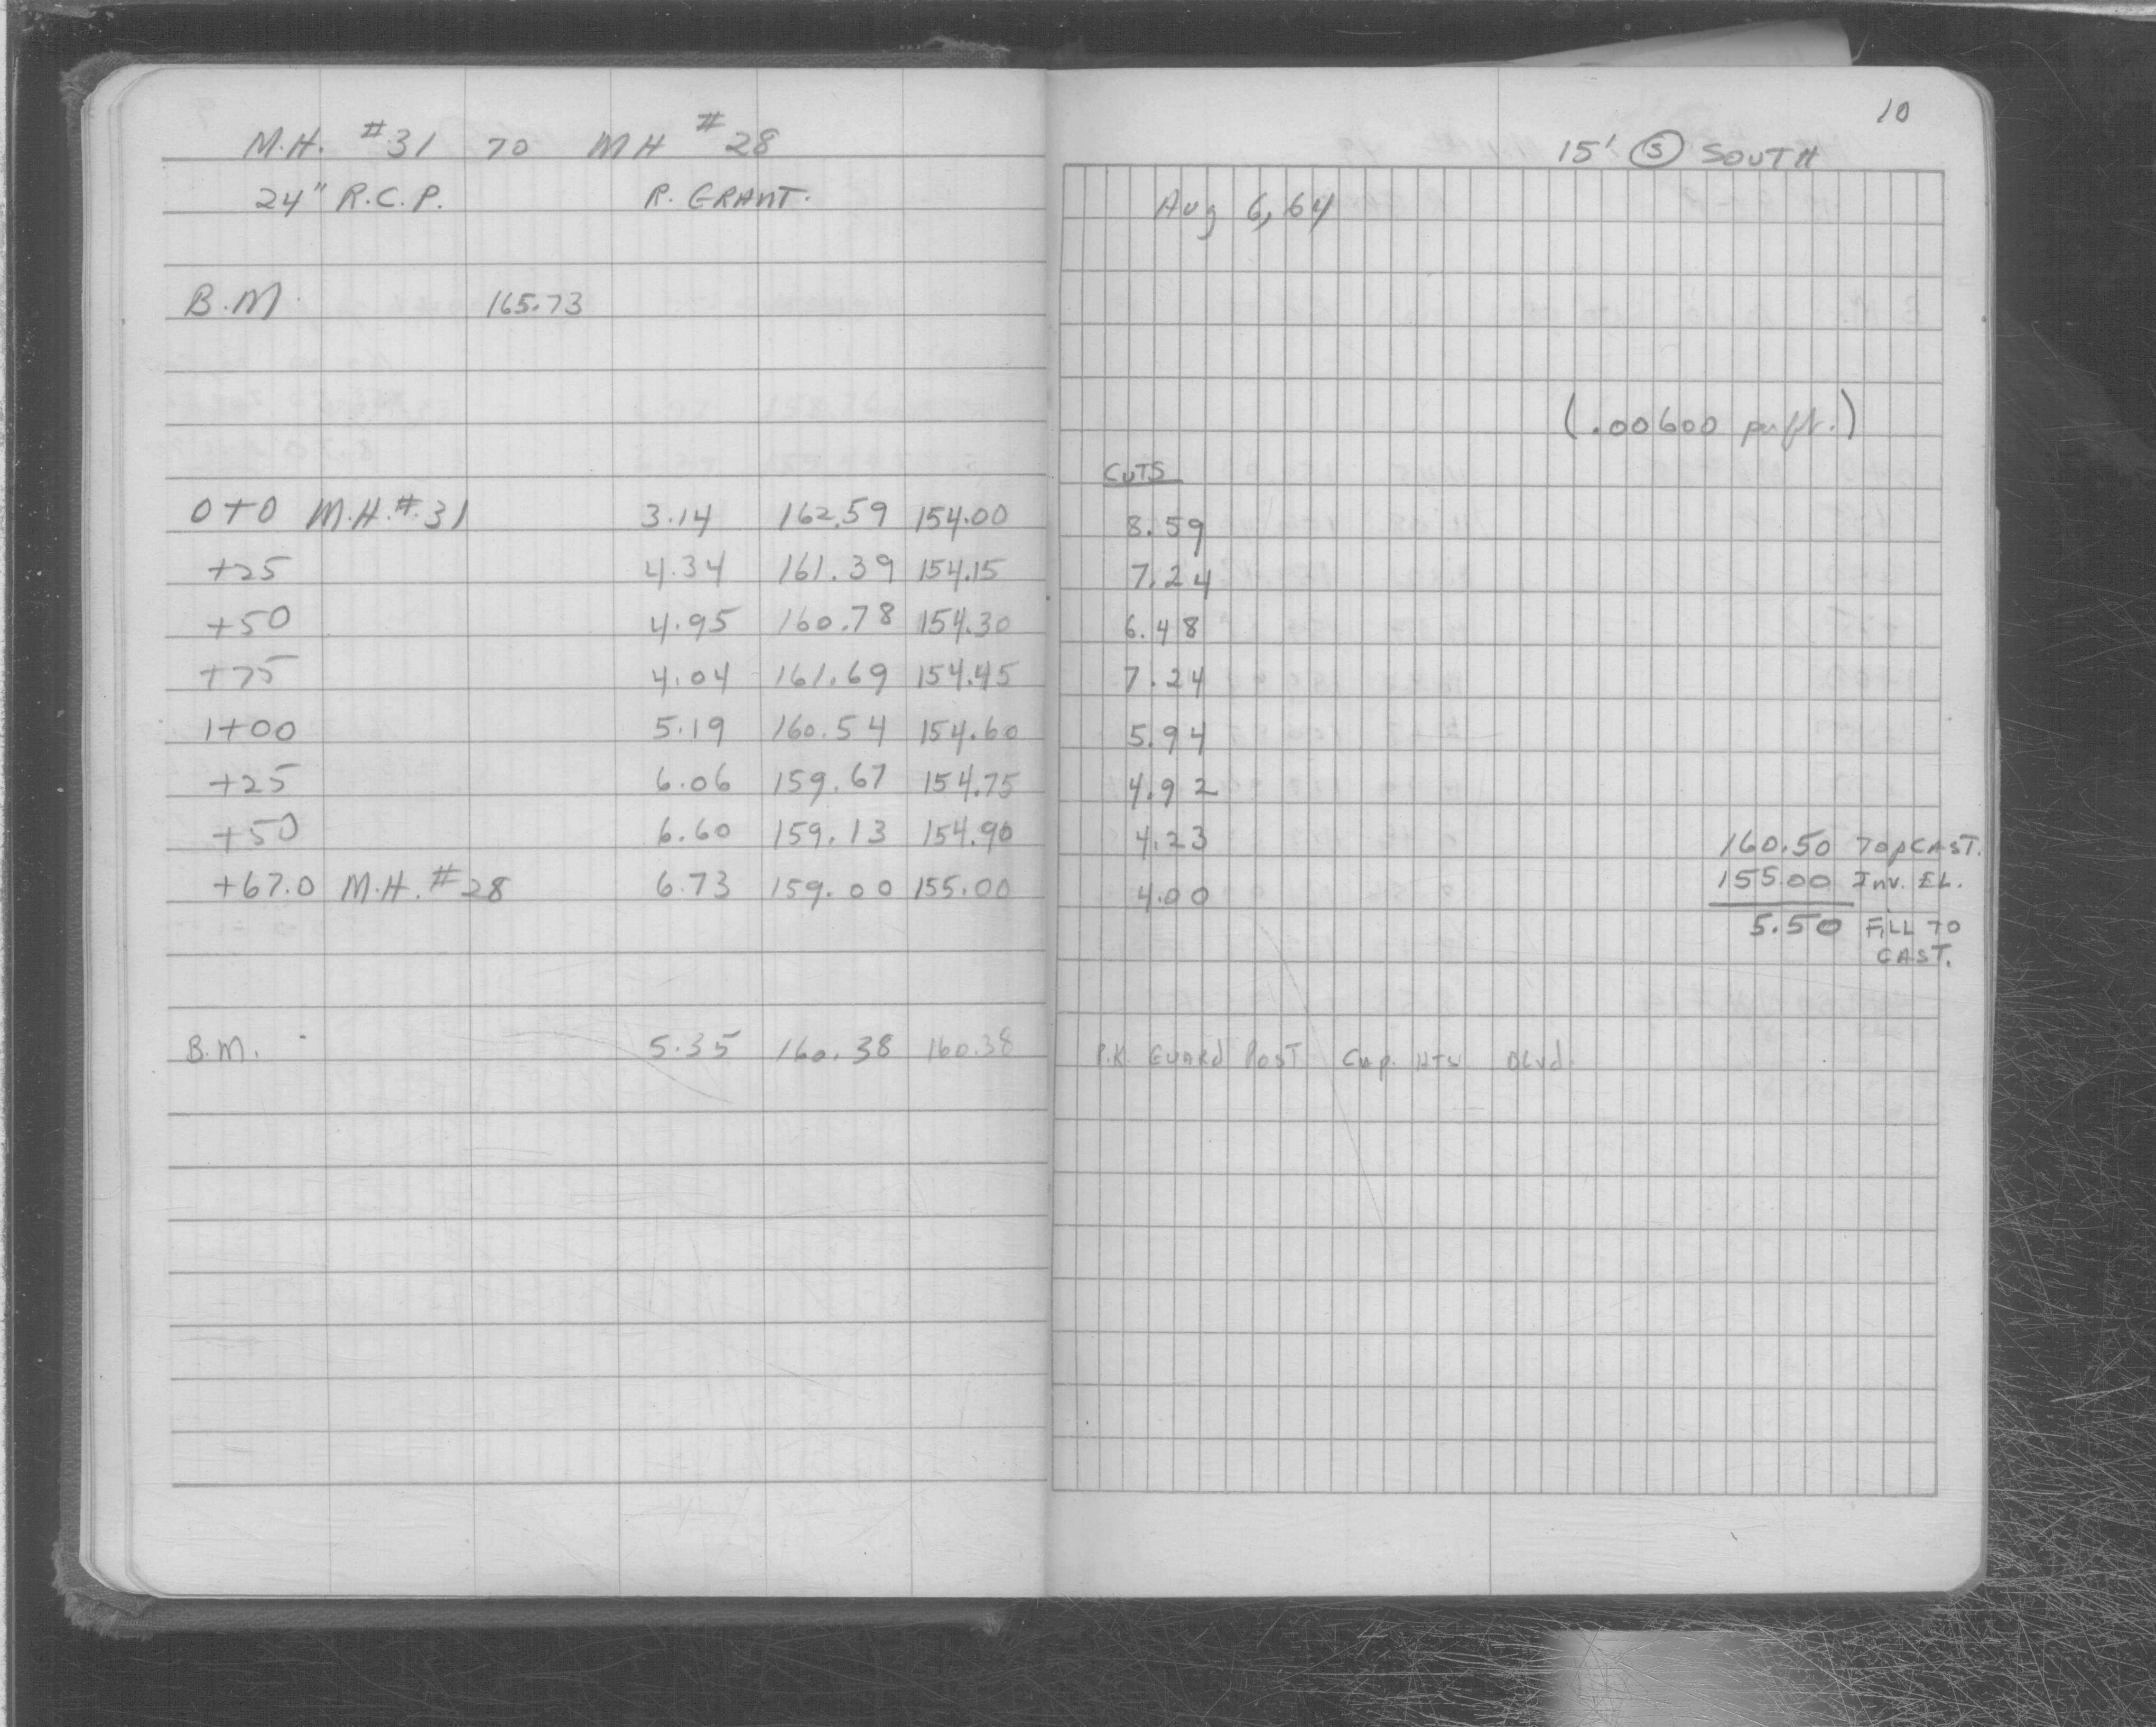 M.H. #31 TO MH #28
24" R.C.P. R. GRANT.
B.M. 165.73
0+0 M.H.#31 3.14 162.59 154.00
+25 4.34 161.39 154.15
+50 4.95 160.78 154.30
+75 4.04 161.69 154.45
1+00 5.19 160.54 154.60
+25 6.06 159.67 154.75
+50 6.60 159.13 154.90
+67.0 M.H. #28 6.73 159.00 155.00
B.M. 5.35 160.38 160.38
10
15' S SOUTH
Aug 6, 64
(.00600 per ft.)
CUTS
8.59
7.24
6.48
7.24
5.94
4.92
4.23
4.00
160.50 TOP CAST.
155.00 Inv. EL.
5.50 FILL TO
CAST.
P.K GUARD POST Cap. HTS Blvd.